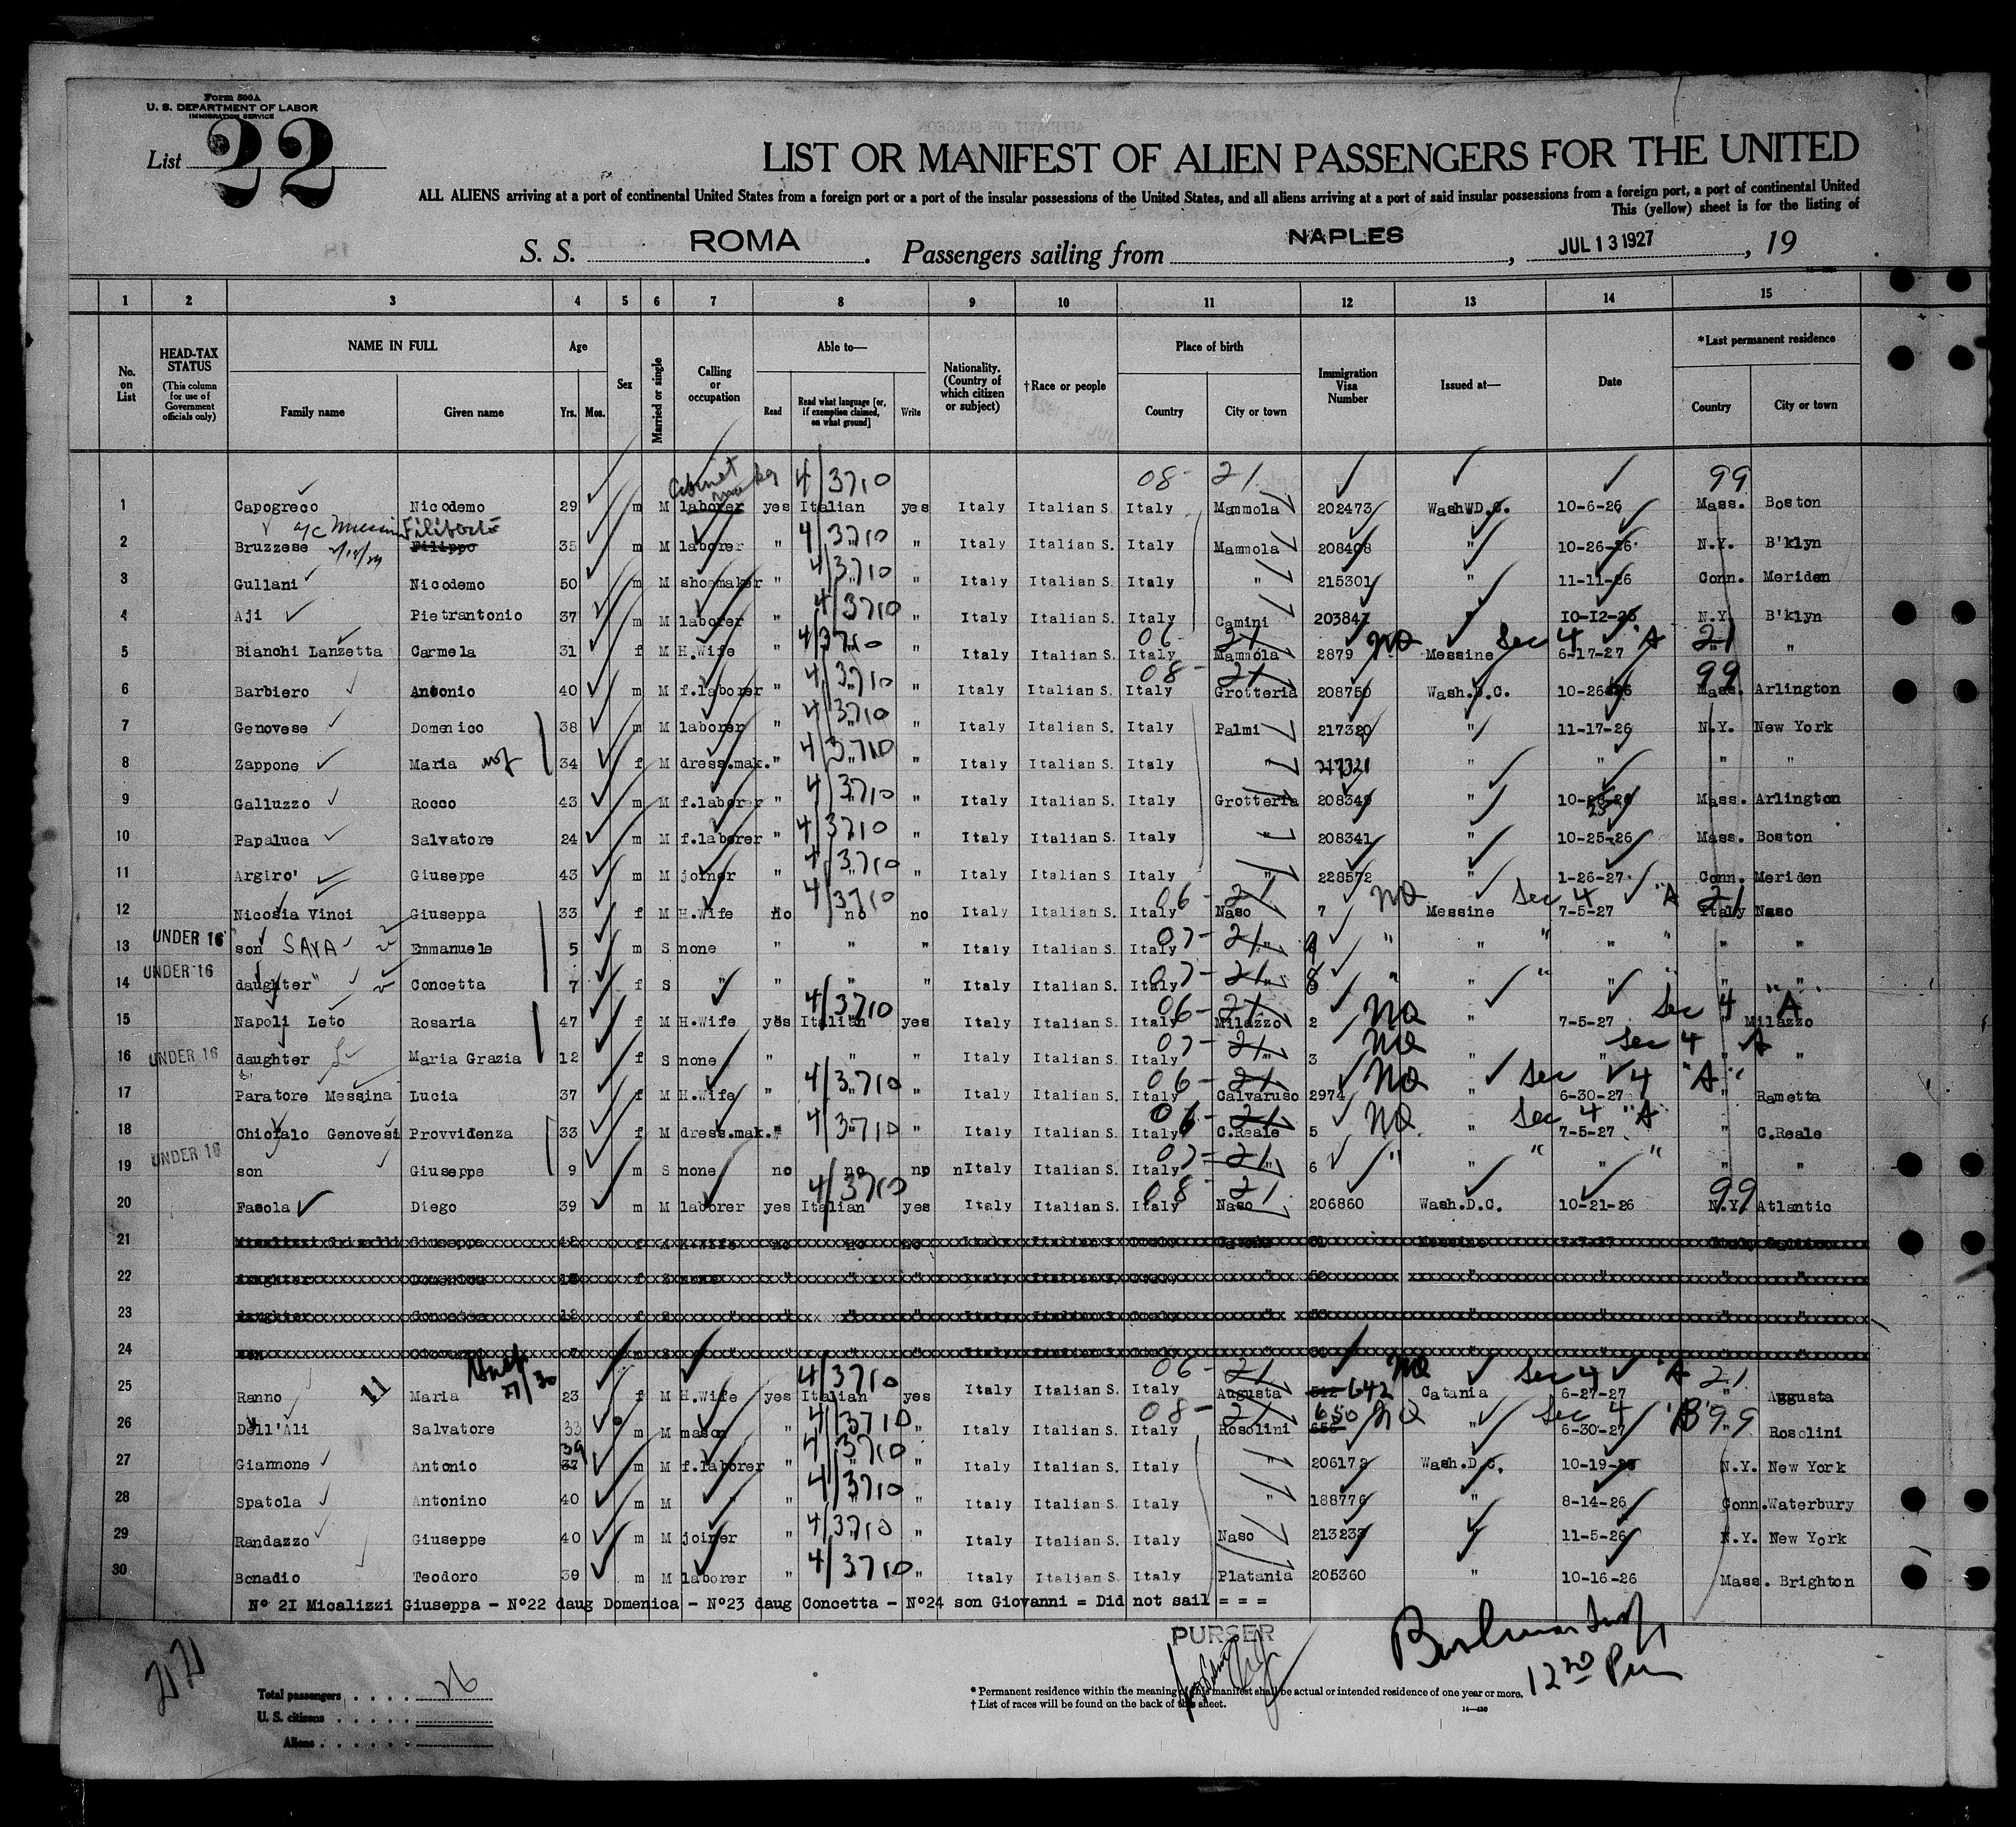 Form 500A
U. S. DEPARTMENT OF LABOR
IMMIGRATION SERVICE
List 22
LIST OR MANIFEST OF ALIEN PASSENGERS FOR THE UNITED
ALL ALIENS arriving at a port of continental United States from a foreign port or a port of the insular possessions of the United States, and all aliens arriving at a port of said insular possessions from a foreign port, a port of continental United
This (yellow) sheet is for the listing of
S. S. ROMA. Passengers sailing from NAPLES, JUL 13 1927, 19
1 2 3 4 5 6 7 8 9 10 11 12 13 14 15
No. on List
HEAD-TAX STATUS (This column for use of Government officials only)
NAME IN FULL
Family name Given name
Age
Yrs. Mos.
Sex
Married or single
Calling or occupation
Able to—
Read Read what language [or, if exemption claimed, on what ground] Write
Nationality. (Country of which citizen or subject)
†Race or people
Place of birth
Country City or town
Immigration Visa Number
Issued at—
Date
*Last permanent residence
Country City or town
Cabinet maker 4/3710 08- 21 99
1 Capogreco Nicodemo 29 m M laborer yes Italian yes Italy Italian S. Italy Mammola 202473 Wash.D.C. 10-6-26 Mass. Boston
2 Bruzzese Filippo 35 m M laborer " 4/3710 " Italy Italian S. Italy Mammola 208408 " 10-26-26 N.Y. B'klyn
3 Gullani Nicodemo 50 m M shoemaker " 4/3710 " Italy Italian S. Italy " 215301 " 11-11-26 Conn. Meriden
4 Aji Pietrantonio 37 m M laborer " 4/3710 " Italy Italian S. Italy Camini 203847 " 10-12-26 N.Y. B'klyn
5 Bianchi Lanzetta Carmela 31 f M H.Wife " 4/3710 " Italy Italian S. 06 Italy 21 Mammola 2879 NQ Messine Sec 4 "A 6-17-27 21 " "
6 Barbiero Antonio 40 m M f.laborer " 4/3710 " Italy Italian S. 08- Italy 21 Grotteria 208750 Wash.D.C. 10-26-26 99 Mass. Arlington
7 Genovese Domenico 38 m M laborer " 4/3710 " Italy Italian S. Italy Palmi 217320 " 11-17-26 N.Y. New York
8 Zappone Maria wf 34 f M dress.mak. " 4/3710 " Italy Italian S. Italy " 217321 " " " "
9 Galluzzo Rocco 43 m M f.laborer " 4/3710 " Italy Italian S. Italy Grotteria 208349 " 10-25-26 Mass. Arlington
10 Papaluca Salvatore 24 m M f.laborer " 4/3710 " Italy Italian S. Italy " 208341 " 10-25-26 Mass. Boston
11 Argiro' Giuseppe 43 m M joiner " 4/3710 " Italy Italian S. Italy " 228572 " 1-26-27 Conn. Meriden
12 Nicosia Vinci Giuseppa 33 f M H.Wife no 4/3710 no no Italy Italian S. 06- Italy 21 Naso 7 NQ Messine Sec 4 "A 7-5-27 21 Italy Naso
13 UNDER 16 son SAYA Emmanuele 5 m S none " " " Italy Italian S. 07- Italy 21 " " " " " "
14 UNDER 16 daughter " Concetta 7 f S " " " " Italy Italian S. 07- Italy 21 " 8 " " " " "
15 Napoli Leto Rosaria 47 f M H.Wife yes 4/3710 Italian yes Italy Italian S. 06- Italy 21 Milazzo 2 NQ " Sec 4 "A" 7-5-27 " Milazzo
16 UNDER 16 daughter Maria Grazia 12 f S none " " " Italy Italian S. 07- Italy 21 " 3 NQ " Sec 4 A " " "
17 Paratore Messina Lucia 37 f M H.Wife " 4/3710 " Italy Italian S. 06- Italy 21 Calvaruso 2974 NQ " Sec 4 "A" 6-30-27 " Rametta
18 Chiofalo Genovesi Provvidenza 33 f M dress.mak. " 4/3710 " Italy Italian S. 06- Italy 21 C.Reale 5 NQ " Sec 4 "A" 7-5-27 " C.Reale
19 UNDER 16 son Giuseppe 9 m S none no no no Italy Italian S. 07- Italy 21 " 6 " " " " " "
20 Fasola Diego 39 m M laborer yes 4/3710 Italian yes Italy Italian S. 08- Italy 21 Naso 206860 Wash.D.C. 10-21-26 99 N.Y. Atlantic
21
22
23
24
25 Ranno 11 Maria 23 f M H.Wife yes 4/3710 Italian yes Italy Italian S. 06- Italy 21 Augusta 642 NQ Catania Sec 4 "A 6-27-27 21 " Augusta
26 Dell'Ali Salvatore 33 m M mason " 4/3710 " Italy Italian S. 08- Italy 21 Rosolini 650 NQ " Sec 4 "B" 6-30-27 99 " Rosolini
27 Giannone Antonio 39 m M f.laborer " 4/3710 " Italy Italian S. Italy " 206172 Wash.D.C. 10-19-26 N.Y. New York
28 Spatola Antonino 40 m M " " 4/3710 " Italy Italian S. Italy " 188776 " 8-14-26 Conn. Waterbury
29 Randazzo Giuseppe 40 m M joiner " 4/3710 " Italy Italian S. Italy Naso 213233 " 11-5-26 N.Y. New York
30 Bonadio Teodoro 39 m M laborer " 4/3710 " Italy Italian S. Italy Platania 205360 " 10-16-26 Mass. Brighton
Nº 21 Micalizzi Giuseppa - Nº22 daug Domenica - Nº23 daug Concetta - Nº24 son Giovanni = Did not sail = = =
PURSER
12 20 Pm
Total passengers . . . . 26
U. S. citizens . . . . .
Aliens . . . . . .
* Permanent residence within the meaning of this manifest shall be actual or intended residence of one year or more.
† List of races will be found on the back of this sheet.